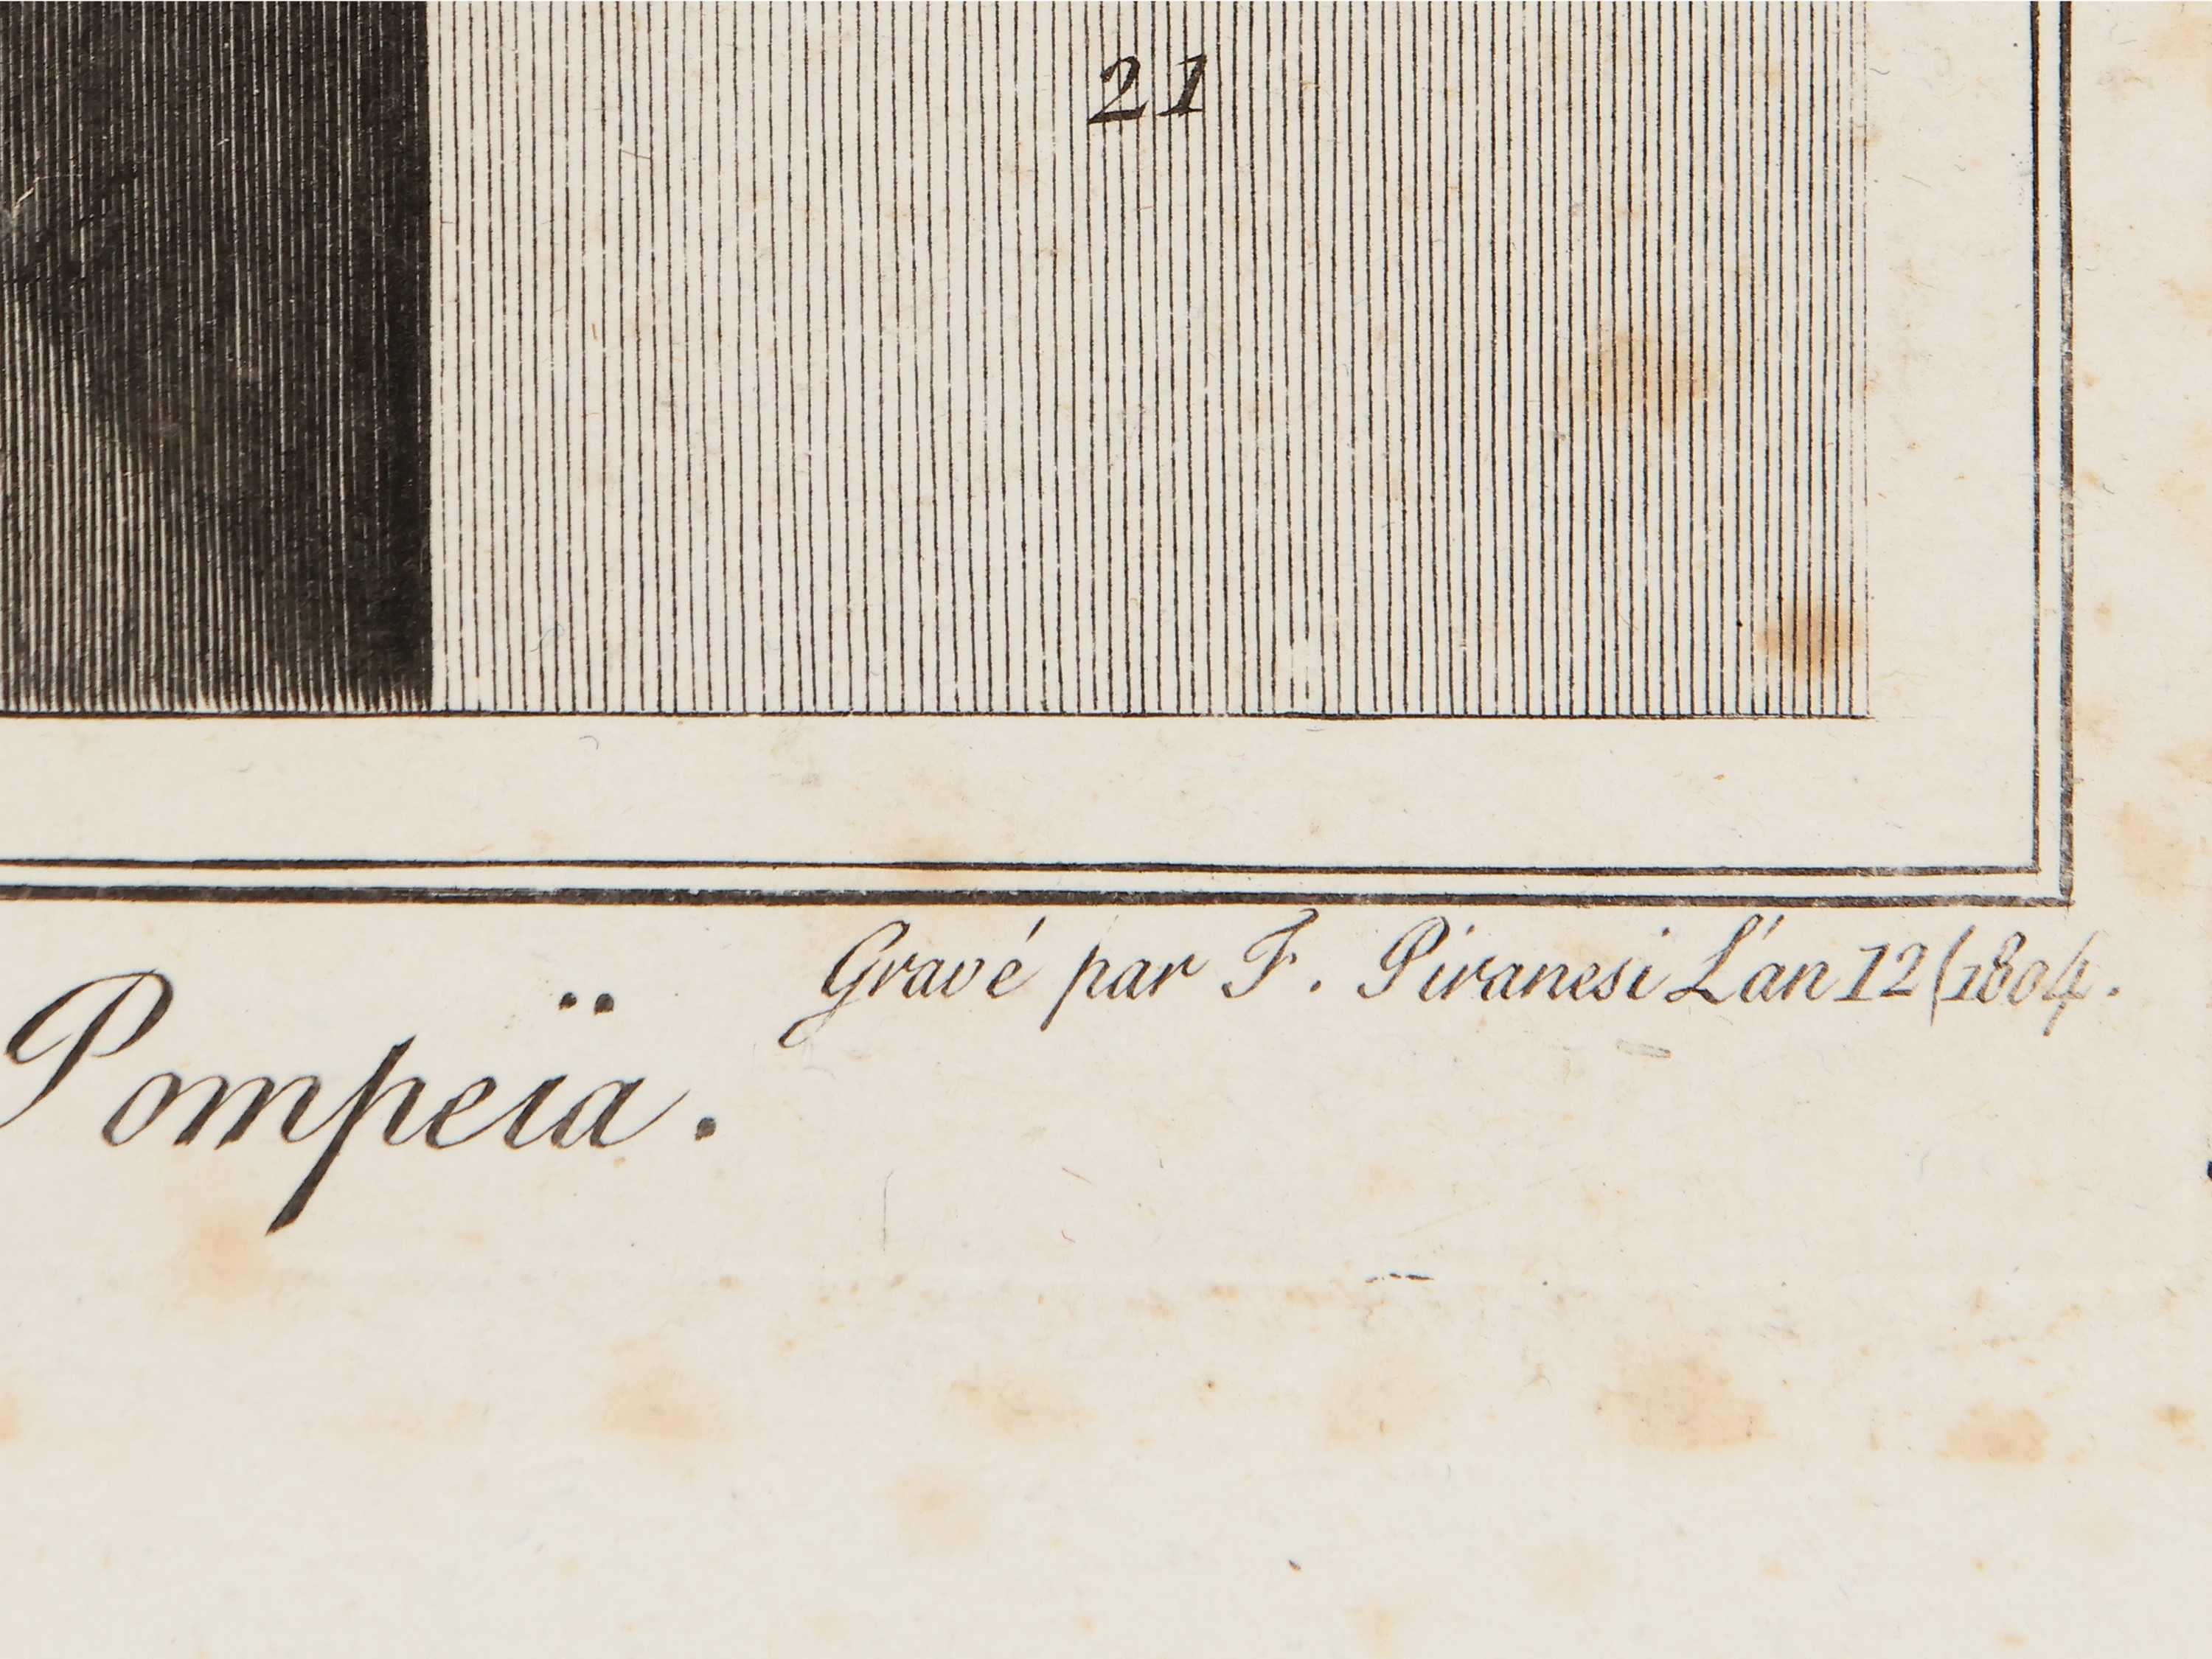 21
Gravé par F. Piranesi L'an 12 (1804.
Pompeïa.